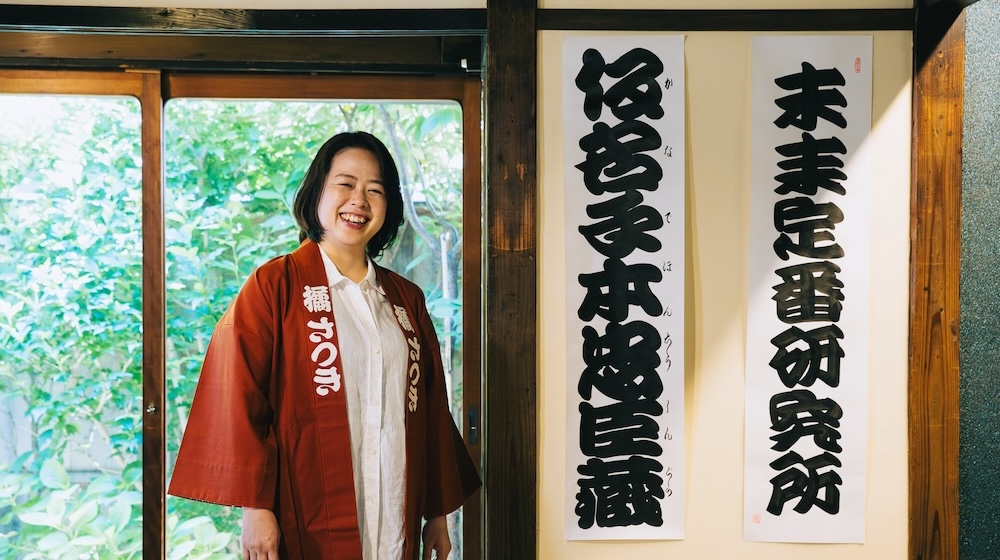 橘さつき
橘さつき
末未定番研究所
仮名手本忠臣蔵
かなでほんちうしんぐら